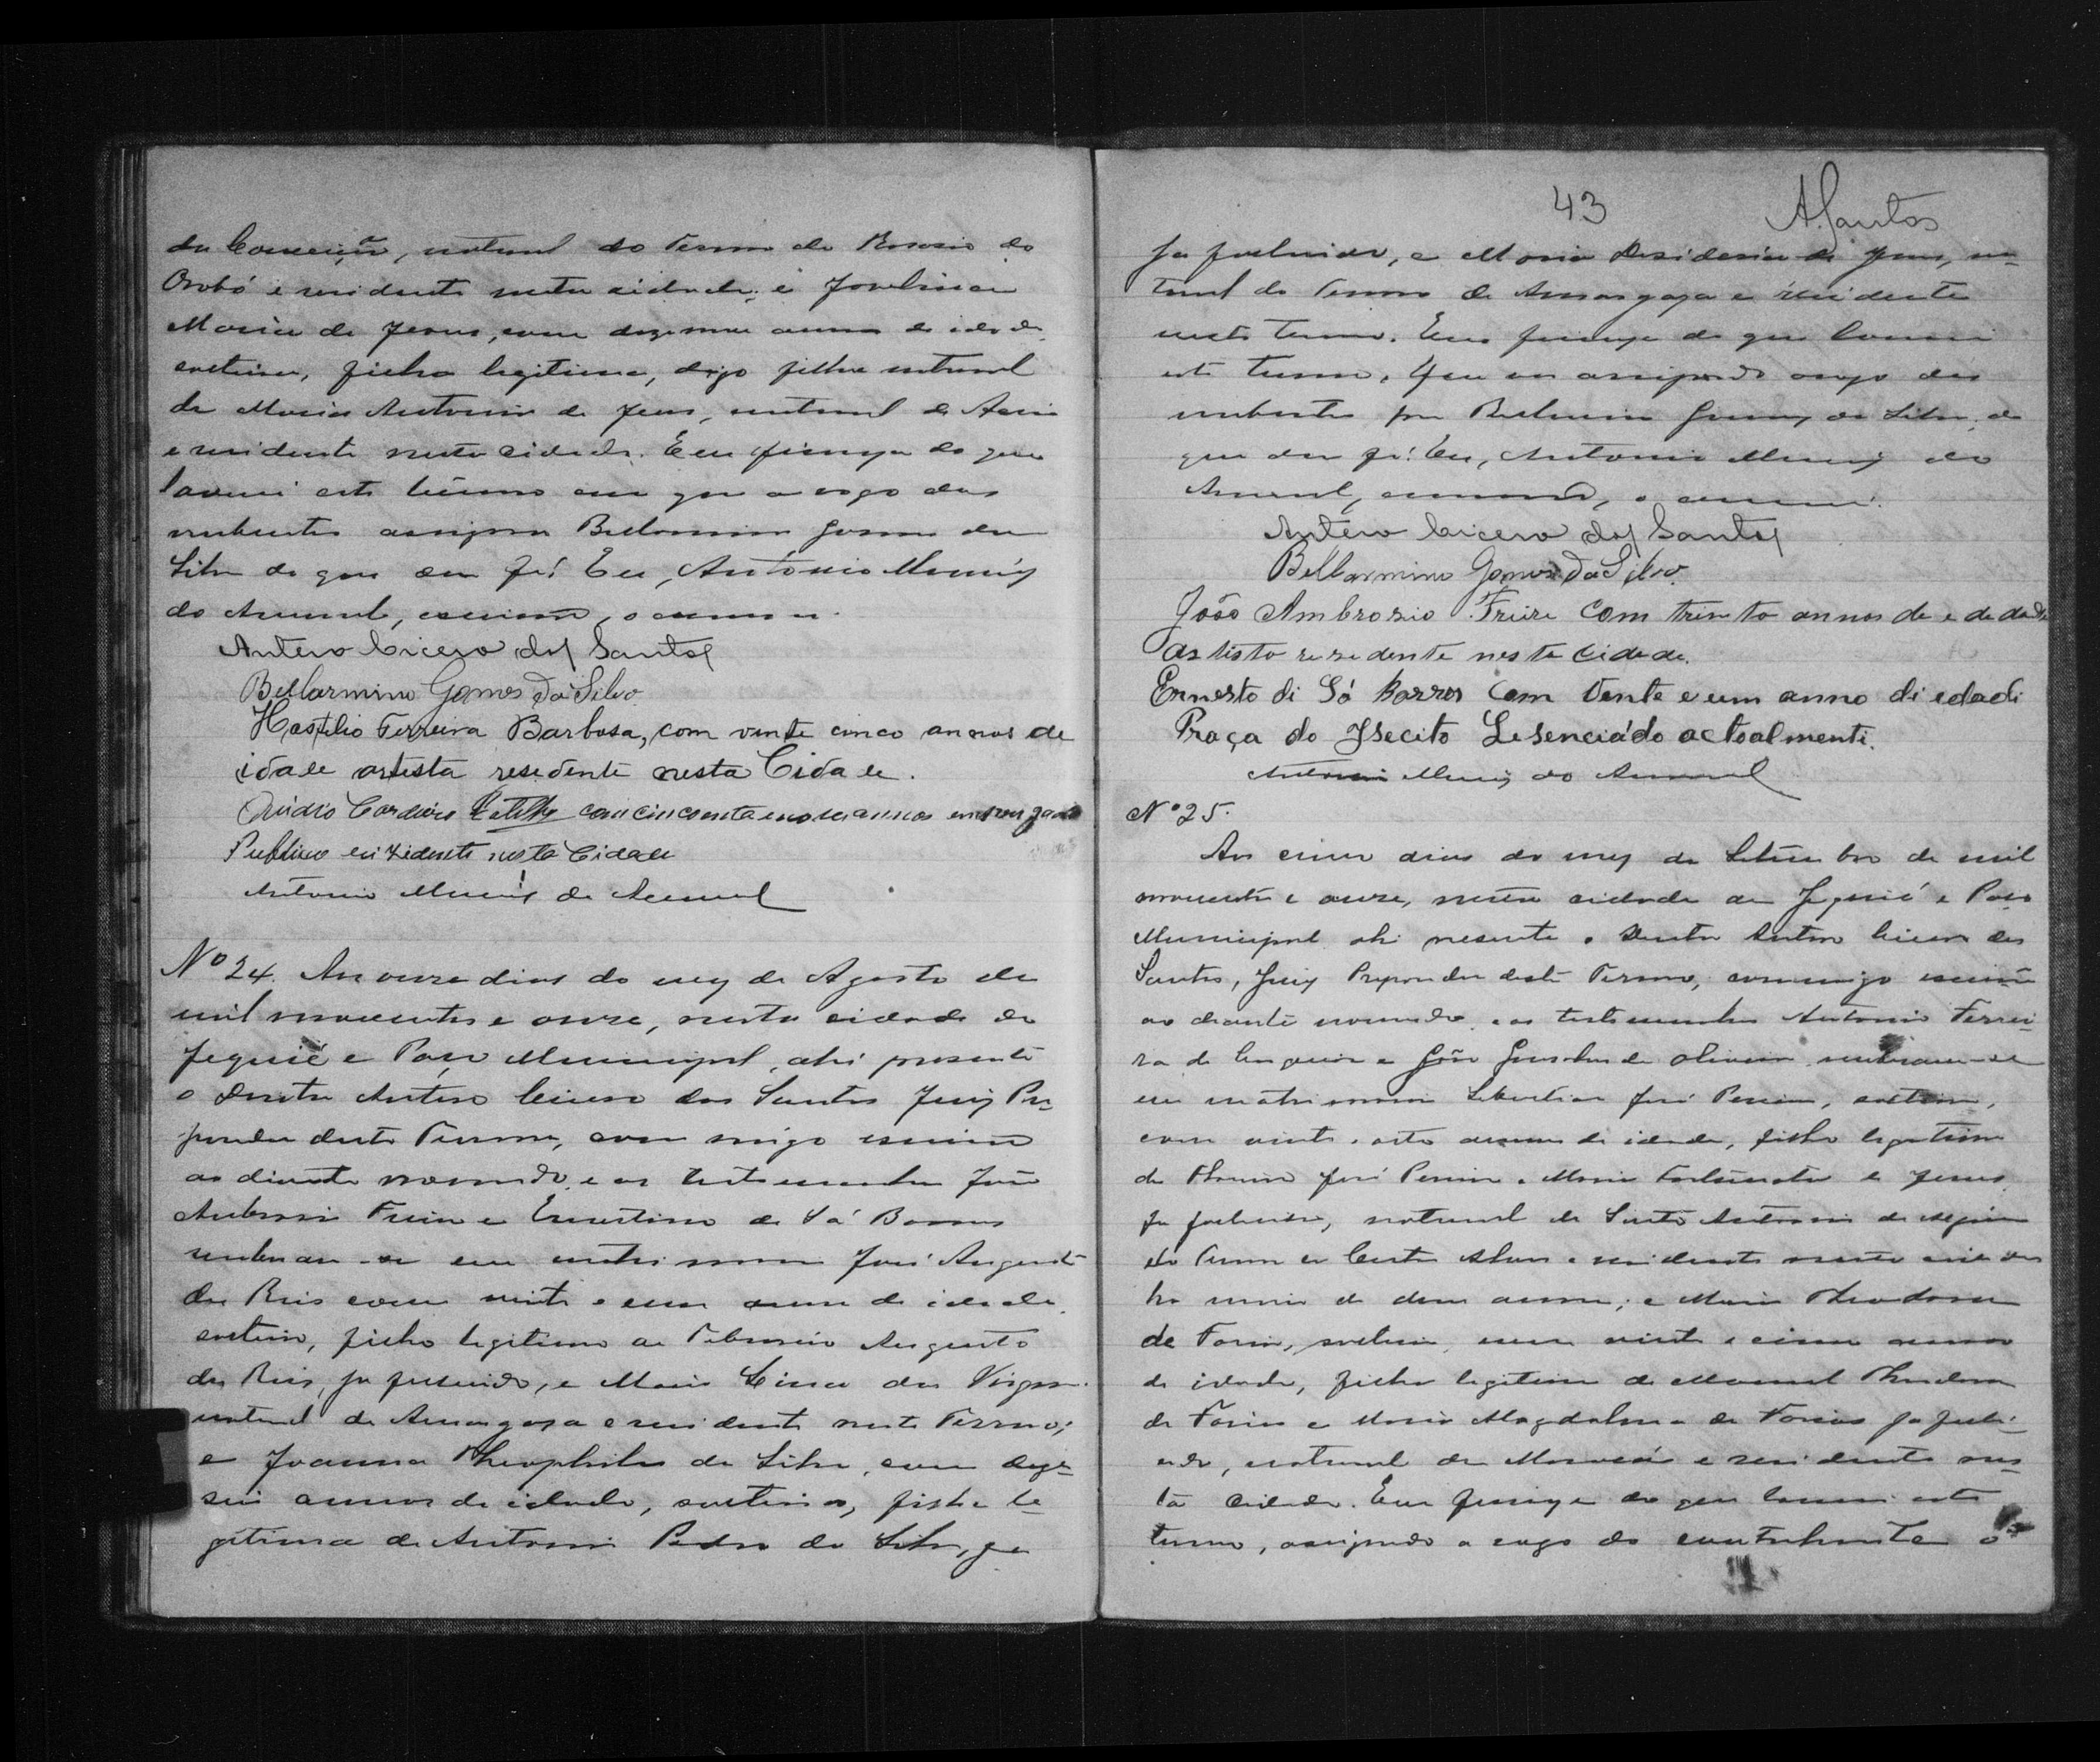 da Conceição, natural do Termo do Rosario do
Orobó e residente nesta cidade; e Jovelina
Maria de Jesus, com dezenove annos de idade,
solteira, filha legitima, digo filha natural
de Maria Antonia de Jesus, natural de Areia
e residente nesta cidade. E eu firmeza do que
lavrei este termo em que a rogo dos
nubentes assigna Bellarmino Gomes da
Silva do que dou fé. Eu, Antonio Muniz
do Amaral, escrivão, o escrevi.
Antero Cicero dos Santos
Bellarmino Gomes da Silva
Hostilio Ferreira Barbosa, com vinte cinco annos de
idade artista residente nesta Cidade.
Ovidio Cordeiro com cincoenta e nove annos empregado
Publico rezidente nesta Cidade
Antonio Muniz do Amaral
Nº 24. Aos onze dias do mez de Agosto de
mil novecentos e onze, nesta cidade de
Jequié e Paço Municipal, ahi presente
o Doutor Antero Cicero dos Santos Juiz Pre-
parador deste Termo, com migo escrivão
ao diante nomeado, e as testemunhas João
Ambrosio Freire e Ernestino de Sá Barros
receberam-se em matrimonio José Augusto
dos Reis com vinte e um annos de idade,
solteiro, filho legitimo de Tiburcio Augusto
dos Reis, ja fallecido, e Maria das Virgens
natural de Amargosa e residente neste Termo;
e Joanna Theophila da Silva, com deze-
seis annos de idade, solteira, filha le-
gitima de Antonio Pedro da Silva, ja
43 A. Santos
ja fallecido, e Maria Desideria de Jesus, na-
tural do Termo de Amargosa e residente
neste termo. Em firmeza do que lavrei
este termo, que vai assignado a rogo dos
nubentes por Bellarmino Gomes da Silva, do
que dou fé. Eu, Antonio Muniz do
Amaral, escrivão, o escrevi.
Antero Cicero dos Santos
Bellarmino Gomes da Silva
João Ambrozio Freire com trinta annos de edade
astista rezedente nesta Cidade.
Ernesto di Sá Barros com Vente e um anno di edadi
Praça do Isecito Lesenciádo actoalmenti.
Antonio Muniz do Amaral
Nº 25.
Aos cinco dias do mez de Setembro de mil
novecentos e onze, nesta cidade de Jequié e Paço
Municipal ahi presente o Doutor Antero Cicero dos
Santos, Juiz Preparador deste Termo, commigo escrivão
ao diante nomeado, e as testemunhas Antonio Ferrei-
ra de e João de Oliveira receberam-se
em matrimonio José Pereira, solteiro,
com vinte e oito annos de idade, filho legitimo
de José Pereira e Maria Fortunata de Jesus
ja fallecida, natural de Santo Antonio de
do Termo de Castro Alves e residente nesta cidade
ha mais de dous annos; e Maria Theodora
de Faria, solteira, com vinte e cinco annos
de idade, filha legitima de Manoel Theodoro
de Farias e Maria Magdalena de Farias ja falle-
cida, natural de Maracás e residente nes-
ta Cidade. Em firmeza do que lavrei este
termo, assignado a rogo do contrahente o